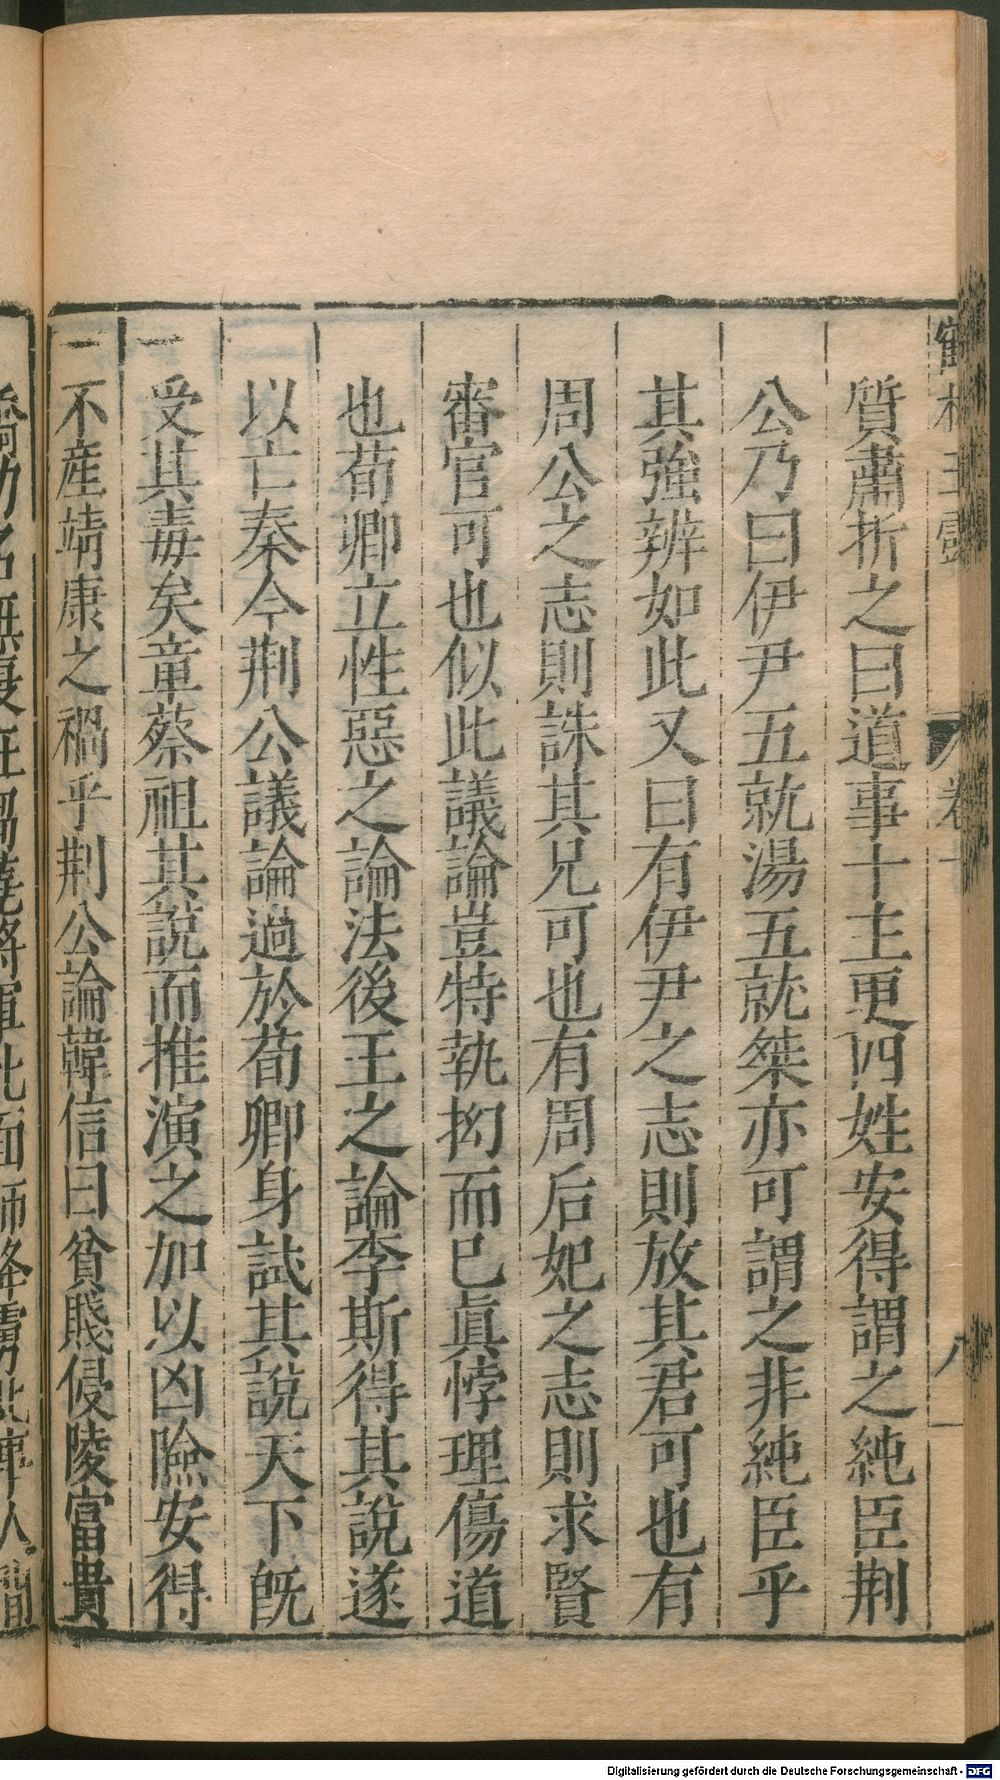 質肅折之曰道事十主更四姓安得謂之純臣荆
公乃曰伊尹五就湯五就桀亦可謂之非純臣乎
其強辨如此又曰有伊尹之志則放其君可也有
周公之志則誅其兄可也有周后妃之志則求賢
審官可也似此議論豈特執拘而已眞悖理傷道
也荀卿立性惡之論法後王之論李斯得其說遂
以亡秦今荆公議論過於荀卿身試其說天下旣
受其毒矣章蔡祖其說而推演之加以凶險安得
不產靖康之禍乎荆公論韓信曰貧賤侵陵富貴
卷
八
Digitalisierung gefördert durch die Deutsche Forschungsgemeinschaft - DFG